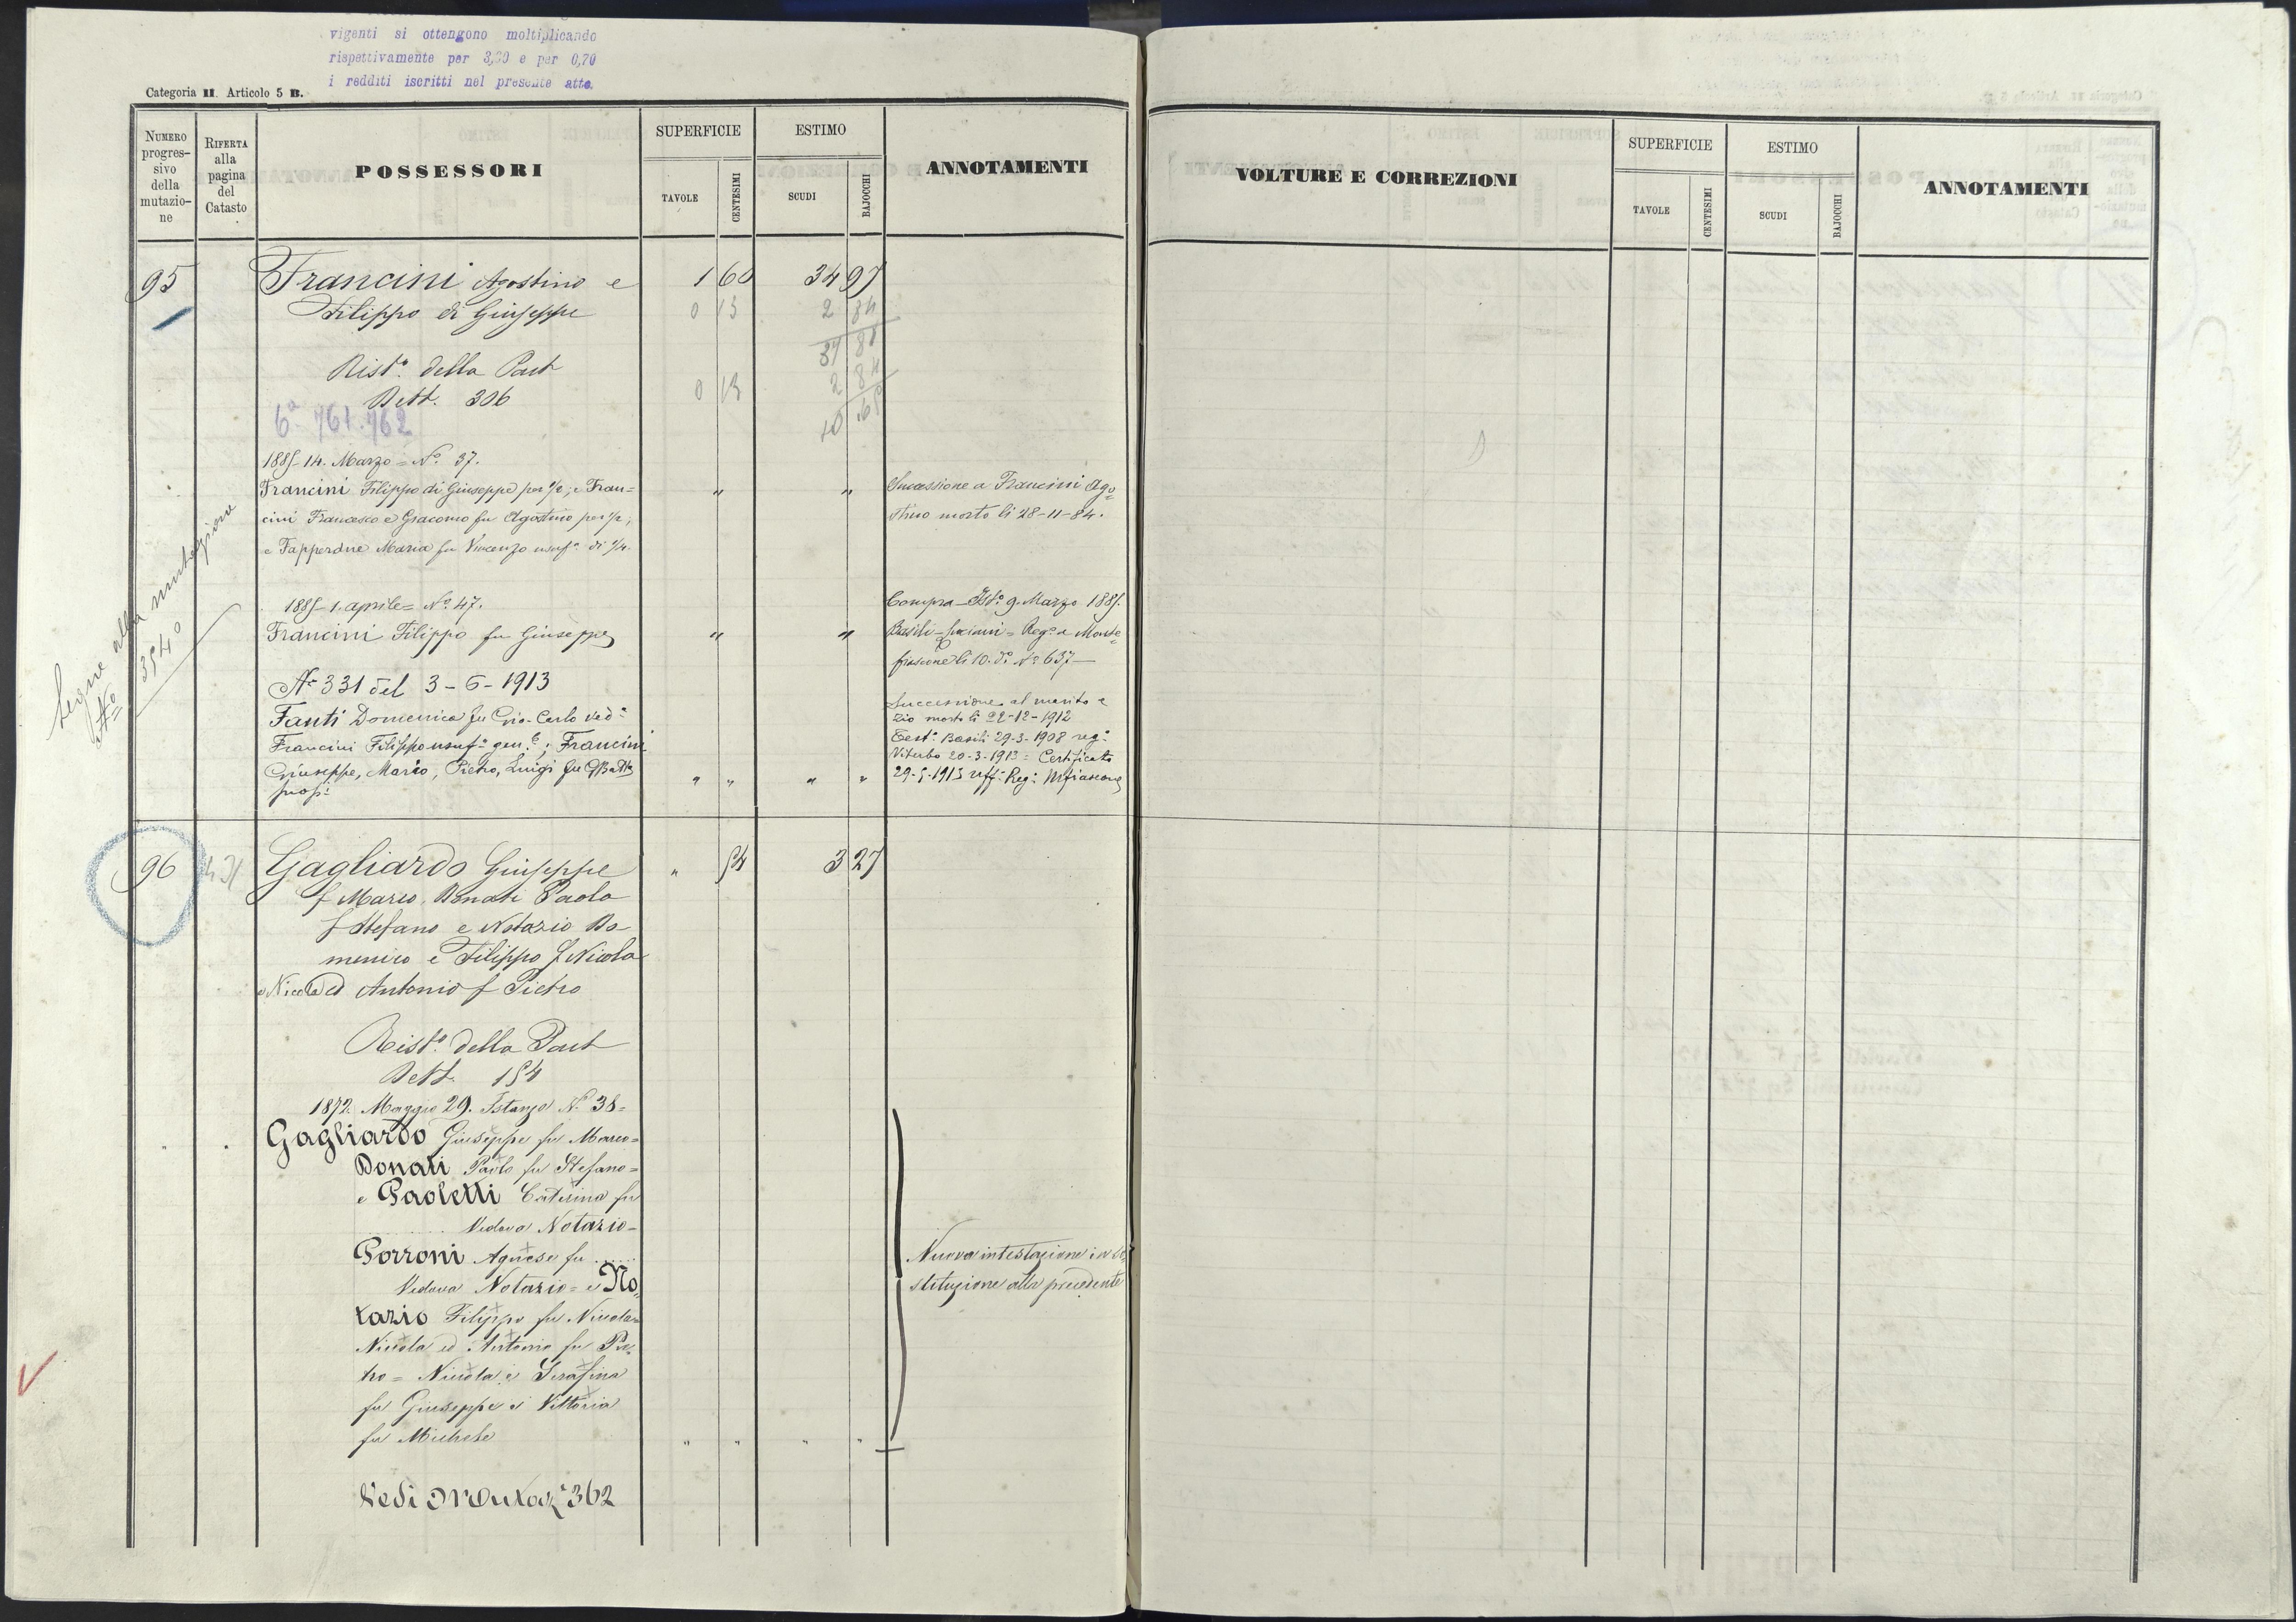 vigenti si ottengono moltiplicando
rispettivamente per 3,60 e per 0,70
i redditi iscritti nel presente atto.
Categoria II. Articolo 5 B.
NUMERO progres- sivo della mutazio- ne
RIFERTA alla pagina del Catasto
POSSESSORI
SUPERFICIE
TAVOLE
CENTESIMI
ESTIMO
SCUDI
BAJOCCHI
ANNOTAMENTI
VOLTURE E CORREZIONI
SUPERFICIE
TAVOLE
CENTESIMI
ESTIMO
SCUDI
BAJOCCHI
ANNOTAMENTI
95 Francini Agostino e 1 60 34 97
Filippo di Giuseppe 0 13 2 84
37 81
Rist.o della Part 2 84
Dett. 306 0 13
6a 761.762
1885-14. Marzo = No. 37.
Francini Filippo di Giuseppe per 1/2; e Fran= " "
cini Francesco e Giacomo fu Agostino per 1/2,
e Fapperdue Maria fu Vincenzo usuf.a di 1/4.
Successione a Francini Ago=
stino morto li 28-11-84.
1885-1. aprile= No. 47.
Francini Filippo fu Giuseppe " "
Compra 9. Marzo 1885.
Basili = Reg.o a Monte=
fiascone li 10. do No. 637 —
No 331 del 3-6-1913
Fanti Domenica fu Gio-Carlo ved.a
Francini Filippo usuf.a gen.le; Francini
Giuseppe, Mario, Pietro, Luigi fu GBatta " " " "
prop.i
Successione al marito e
zio morto li 22-12-1912
Test.o Basili 29-3-1908 reg.o
Viterbo 20-3-1913 = Certificato
29-5-1913 uff.o Reg.o Mfiascone
Segue alla mutazione
No 3540
96 Gagliardo Giuseppe " 54 3 27
f Marco, Donati Paolo
f Stefano e Notazio Do
menico e Filippo f Nicola
e Nicola ed Antonio f Pietro
Rist.o della Part
Dett. 154
1872. Maggio 29. Istanza No. 38=
Gagliardo Giuseppe fu Marco=
Donati Paolo fu Stefano=
e Paoletti Caterina fu
Vedova Notazio=
Porroni Agnese fu ......
Vedova Notazio= e No=
tazio Filippo fu Nicola=
Nicola ed Antonio fu Pie=
tro = Nicola e Serafina
fu Giuseppe e Vittoria
fu Michele " " " "
Nuova intestazione in so=
stituzione alla precedente
Vedi Mutaz.e 362